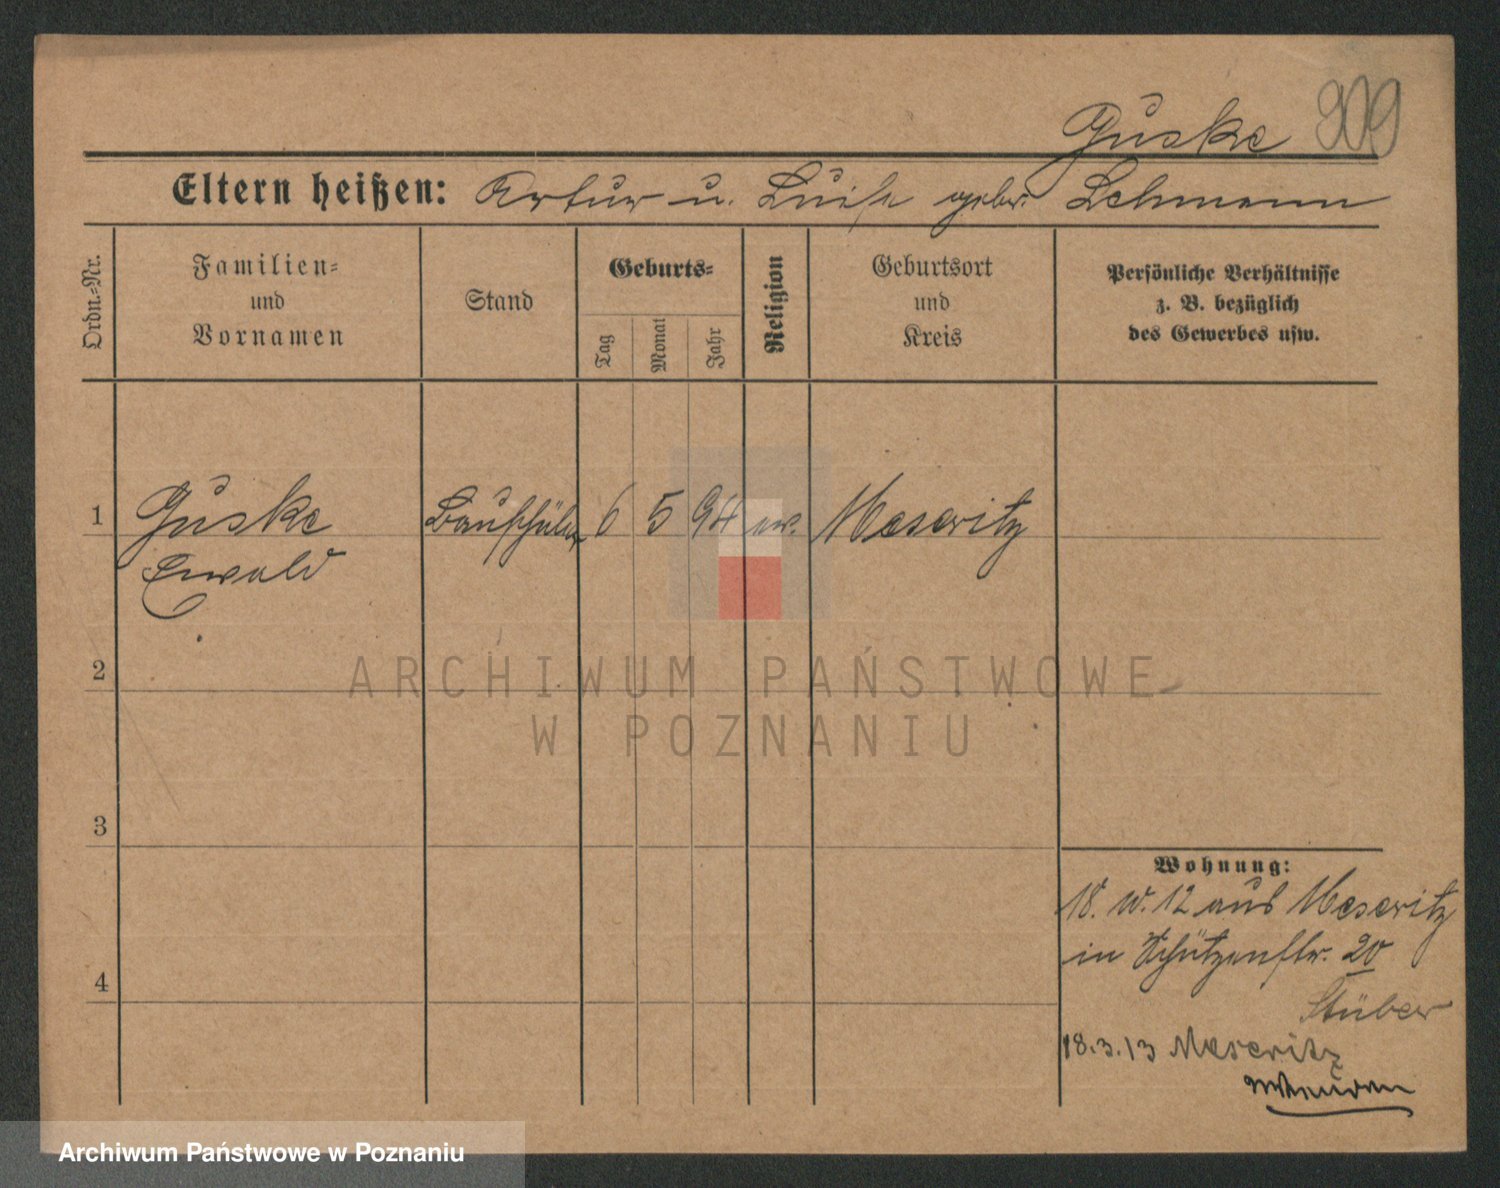 Guske 909
Eltern heißen: Artur u. Luise gebr. Lehmann
Ordn.-Nr.
Familien-
und
Vornamen
Stand
Geburts-
Tag
Monat
Jahr
Religion
Geburtsort
und
Kreis
Persönliche Verhältnisse
z. B. bezüglich
des Gewerbes usw.
1 Guske Bauschüler 6 5 94 ev. Meseritz
Ewald
2
ARCHIWUM PAŃSTWOWE
W POZNANIU
3
4
Wohnung:
18. IV. 12 aus Meseritz
in Schützenstr. 20
Stüber
18.3.13 Meseritz
Archiwum Państwowe w Poznaniu